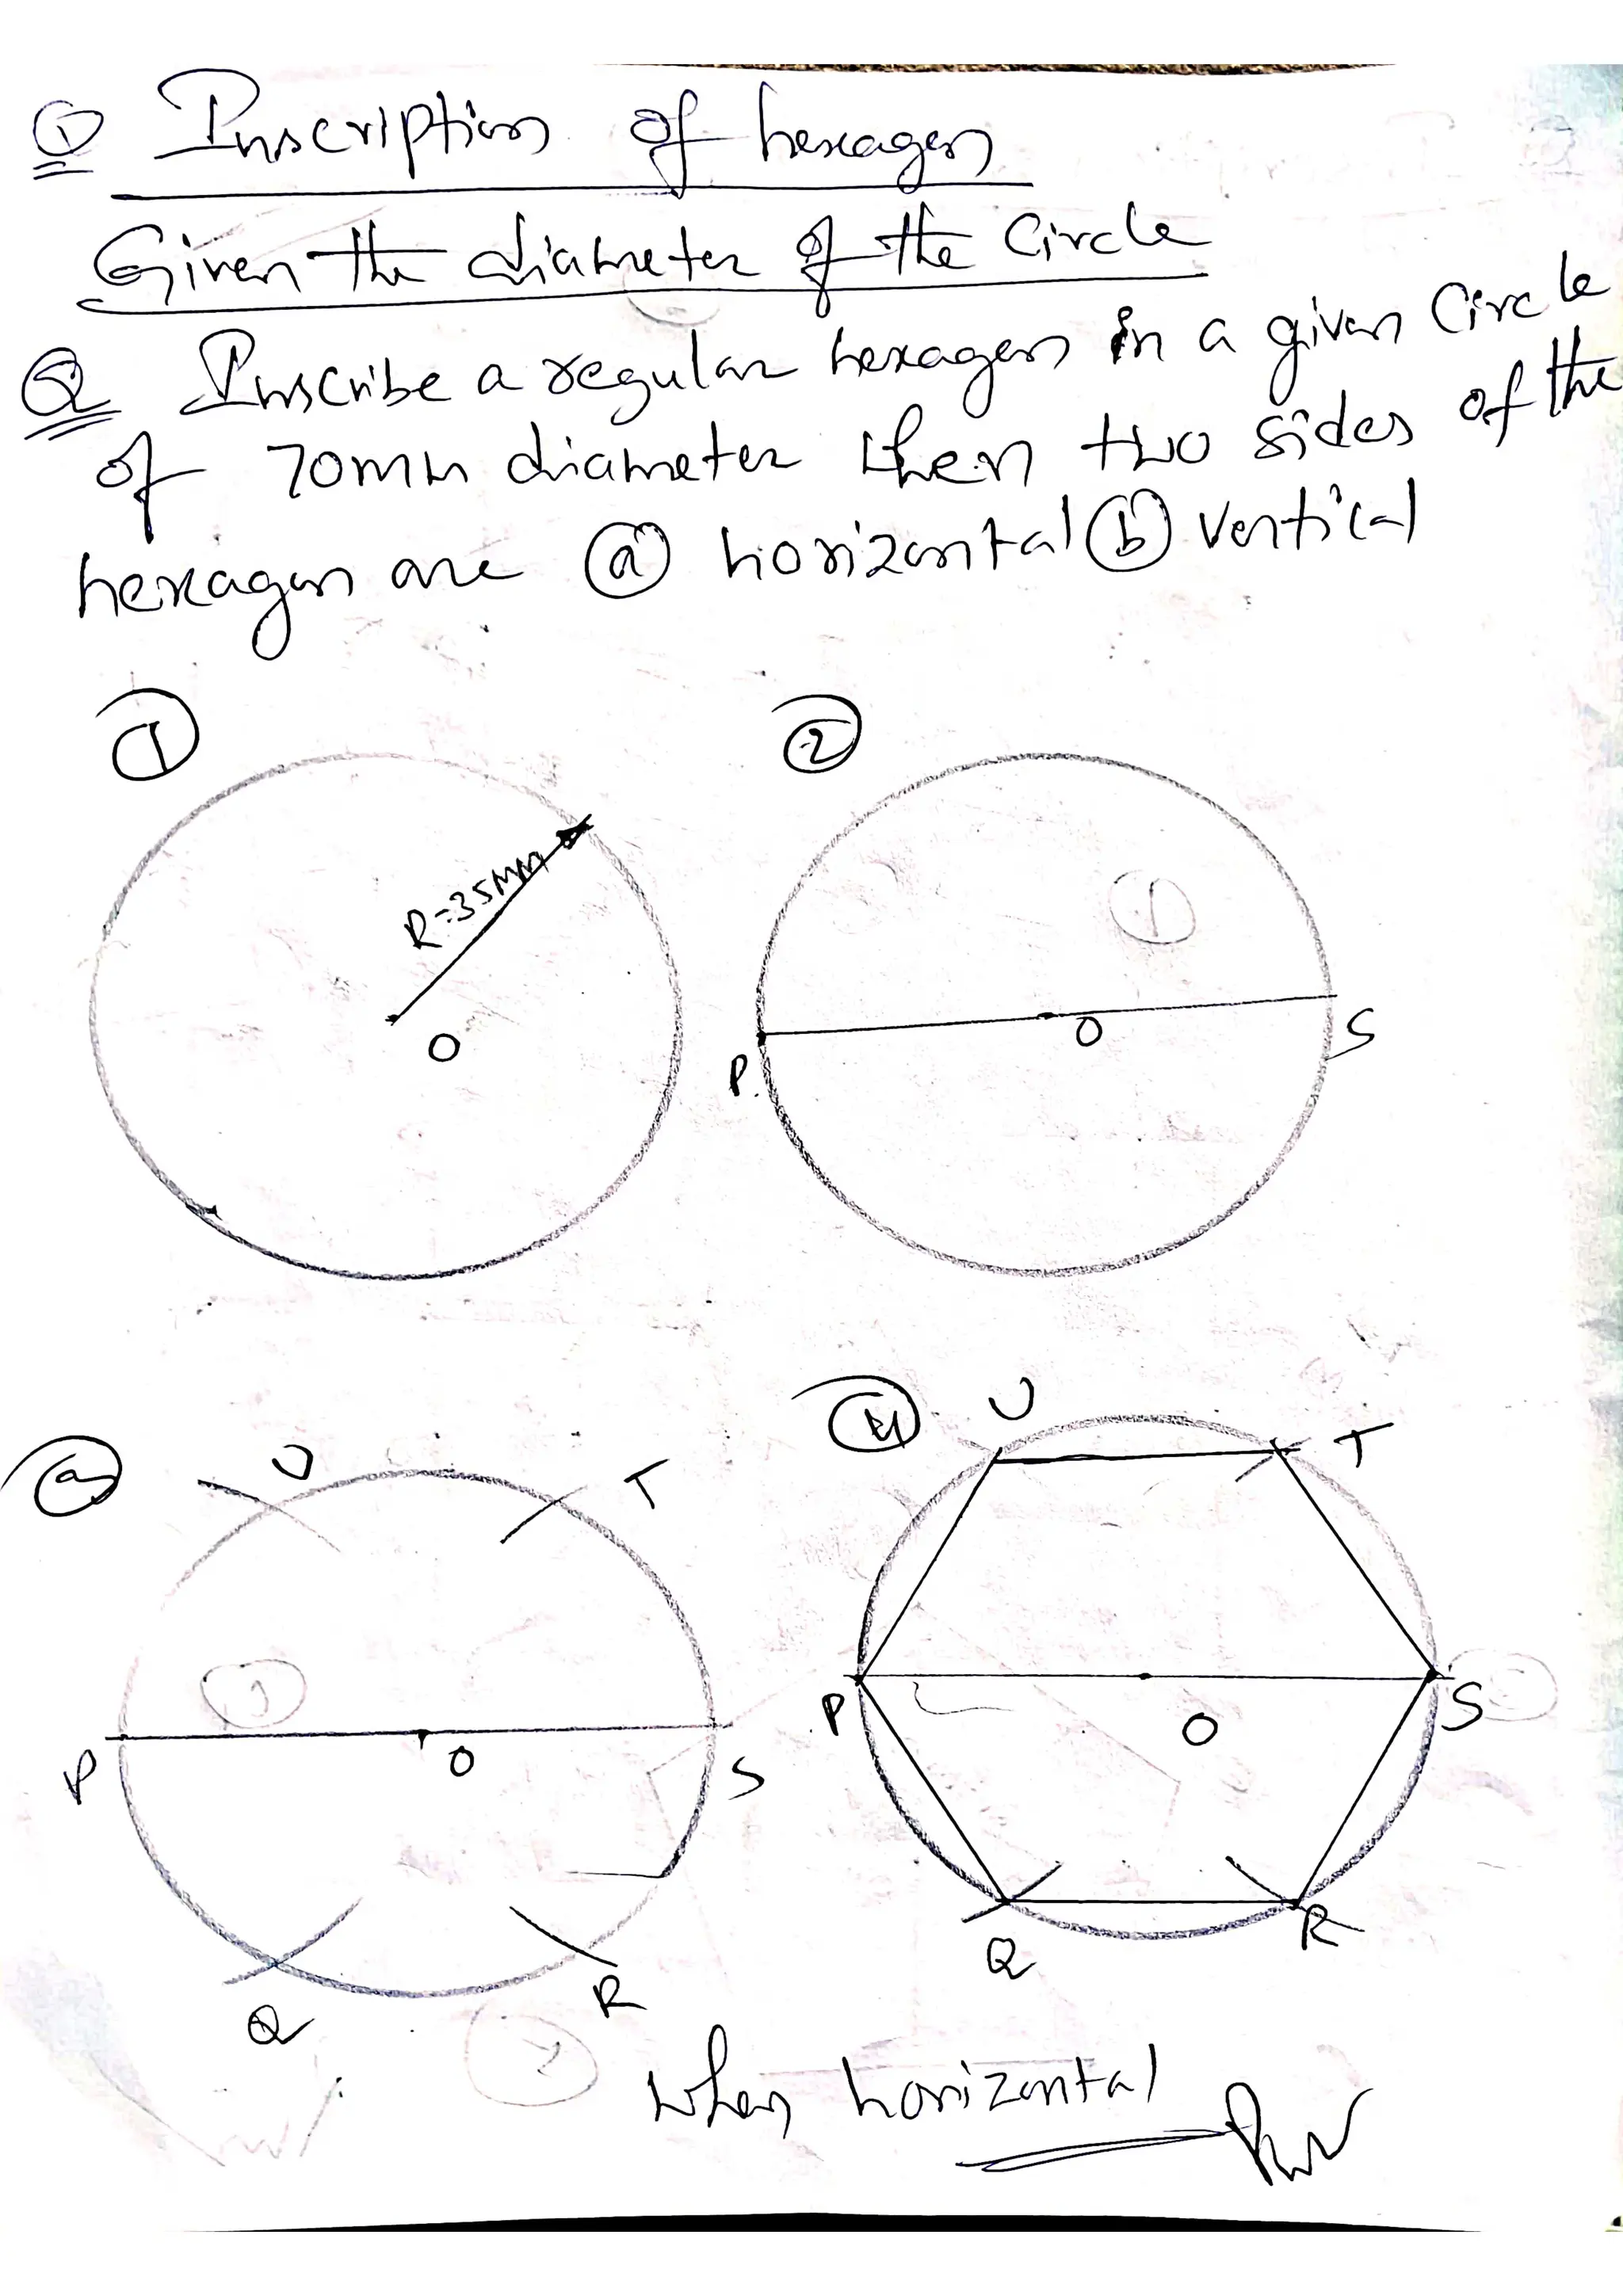 ① Inscription of hexagon
Given the diameter of the Circle
Q Inscribe a regular hexagon in a given Circle
of 70mm diameter when two sides of the
hexagon are ⓐ horizontal ⓑ vertical
①
②
R=35MM
O
P
O
S
U
T
P
O
S
Q
R
④
U
T
P
O
S
Q
R
When horizontal